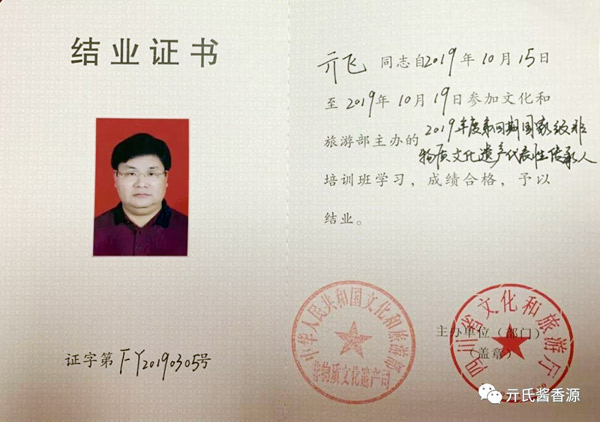 结业证书
证字第FY20190305号
亓飞同志自2019年10月15日
至2019年10月19日参加文化和
旅游部主办的2019年度第四期国家级非
物质文化遗产代表性传承人
培训班学习，成绩合格，予以
结业。
主办单位（部门）
（盖章）
中华人民共和国文化和旅游部
非物质文化遗产司
四川省文化和旅游厅
亓氏酱香源